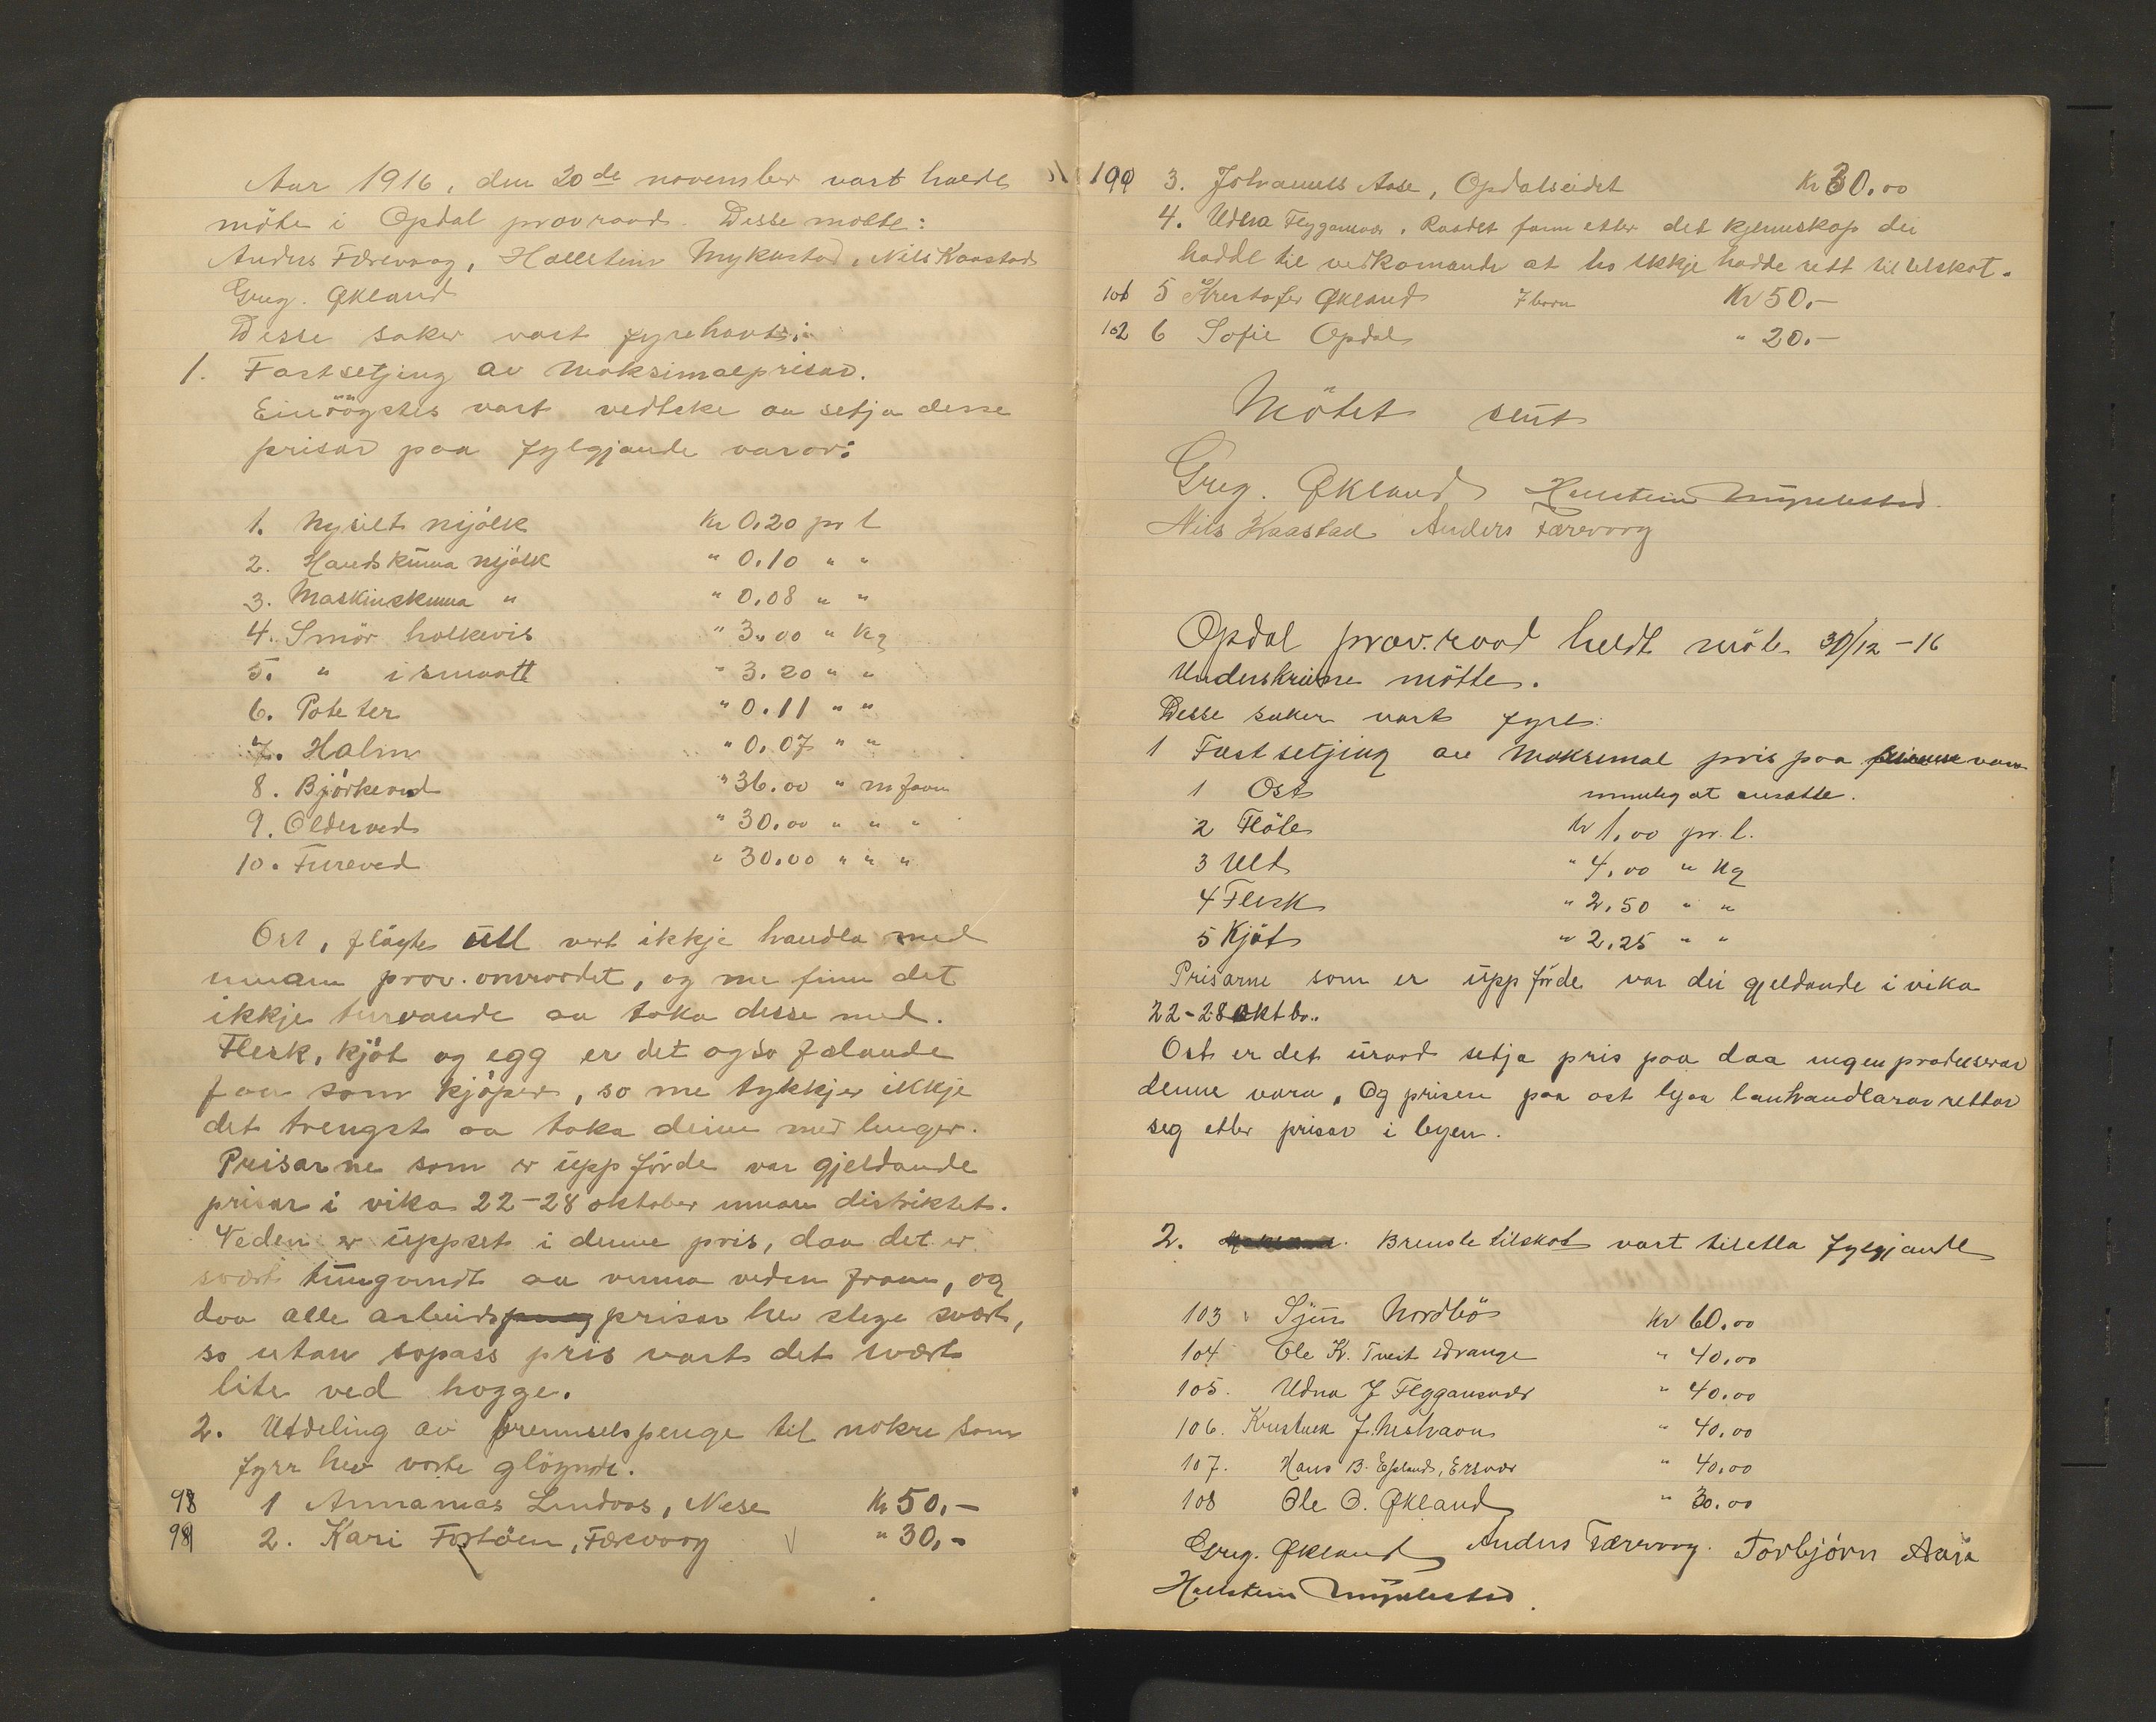 Aar 1916, den 20de november vart halde
möte i Opdal provraad. Desse mötte:
Anders Færevaag, Hallstein Myklestad, Nils Kaastad
Greg. Økland
Desse saker vart fyrehavt:
1. Fastsetjing av maksimalprisar.
Einröystes vart vedteke aa setja desse
prisar paa fylgjande varor:
1. Nysilt mjölk Kr 0.20 pr l
2. Handskuma mjölk " 0.10 " "
3. Maskinskuma " " 0.08 " "
4. Smör holkevis " 3.00 " kg
5. " i smaatt " 3.20 " "
6. Poteter " 0.11 " "
7. Halm " 0.07 " "
8. Björkeved " 36.00 " m favn
9. Olderved " 30.00 " " "
10. Fureved " 30.00 " " "
Ost, flöyte ull vert ikkje handla med
innan prov. omraadet, og me finn det
ikkje turvande aa taka desse med.
Flesk, kjöt og egg er det ogso felande
faa som kjöper, so me tykkjer ikkje
det trengst aa taka deim med lenger.
Prisarne som er uppförde var gjeldande
prisar i vika 22-28 oktober innan distriktet.
Veden er uppset i denne pris, daa det er
svært tungvindt aa vinna veden fram, og
daa alle arbeids prisar hev stege svært,
so utan sopass pris vart det svært
lite ved hogge.
2. Utdeling av brennselspenge til nokre som
fyrr hev vorte glöymde.
98 1 Annanias Lindaas, Nese Kr 50,-
99 2. Kari Fortöen, Færevaag V " 30,-
100 3. Johannes Aase, Opdalseidet Kr 30.00
4. Udna Flygansvær. Raadet fann etter det kjennskap dei
hadde til vedkomande at ho ikkje hadde rett til tilskot.
101 5 Kristofer Økland 7 born Kr 50.-
102 6 Sofie Opdal " 20.-
Mötet slut
Greg. Økland Hallstein Myklestad
Nils Kaastad Anders Færevaag
Opdal prov.raad heldt möte 30/12-16
Underskrivne mötte.
Desse saker vart fyre:
1 Fastsetjing av maksimal pris paa varer
1 Ost umuleg at ansette.
2 Flöte kr 1,00 pr. l.
3 Ull " 4,00 " kg
4 Flesk " 2,50 " "
5 Kjöt " 2,25 " "
Prisarne som er uppförde var dei gjeldande i vika
22-28 oktbr.
Ost er det uraad setja pris paa daa ingen produserar
denne vara. Og prisen paa ost hjaa lanhandlarar rettar
seg etter prisar i byen.
2. Brensletilskot vart tiletla fylgjande
103 Sjur Nordbö Kr 60.00
104 Ole K. Tveit Drange " 40,00
105. Udna J Flygansvær " 40.00
106. J. " 40,00
107. Hans B. Epland, Ersvær " 40,00
108 Ole O. Økland " 30.00
Greg. Økland Anders Færevaag. Torbjörn Aasa
Hallstein Myklestad